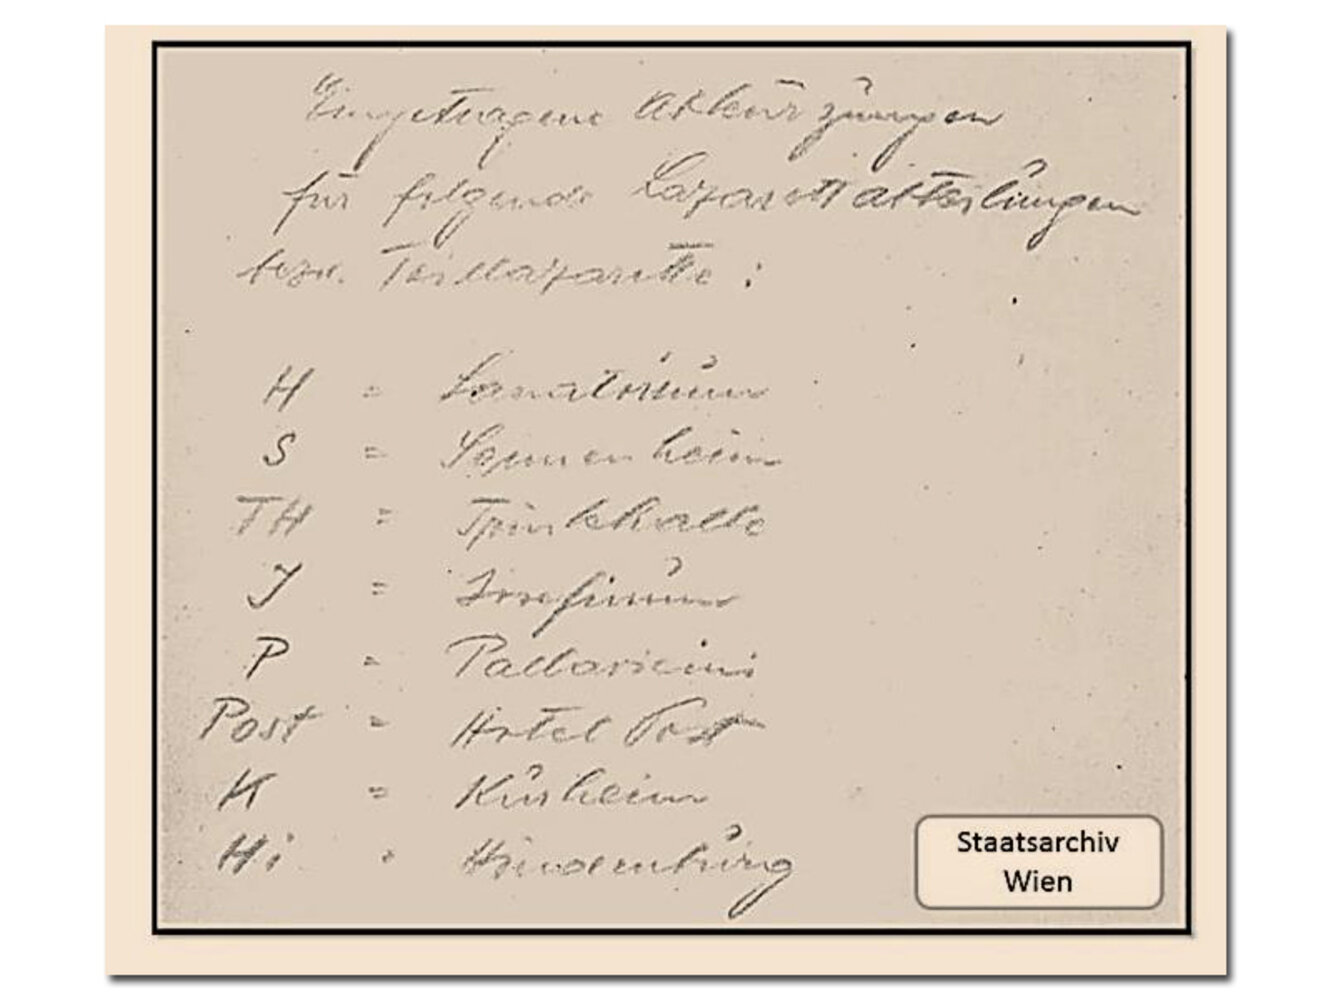 Eingetragene Abkürzungen
für folgende Lazarettabteilungen
bzw. Teillazarette :
H = Sanatorium
S = Sonnenheim
TH = Trinkhalle
J = Josefinum
P = Pallavicini
Post = Hotel Post
K = Kurheim
Hi = Hindenburg
Staatsarchiv
Wien